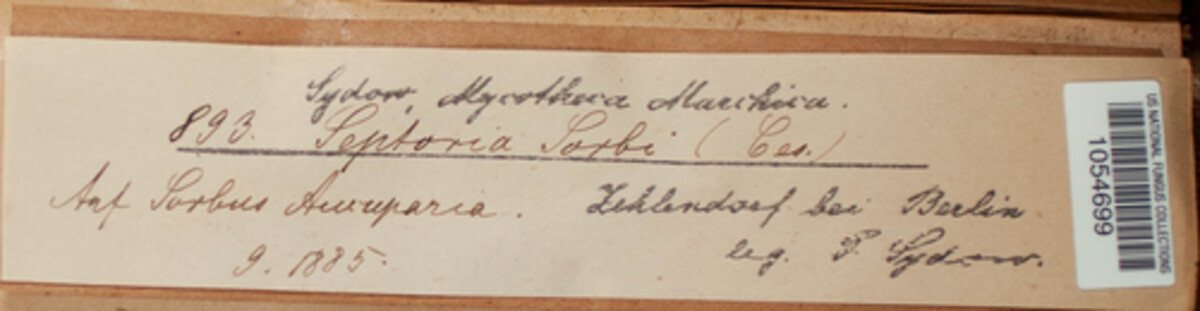 Sydow, Mycotheca Marchica.
893. Septoria Sorbi (Ces.)
Auf Sorbus Aucuparia. Zehlendorf bei Berlin
9. 1885. leg. P. Sydow.
US NATIONAL FUNGUS COLLECTIONS
1054699